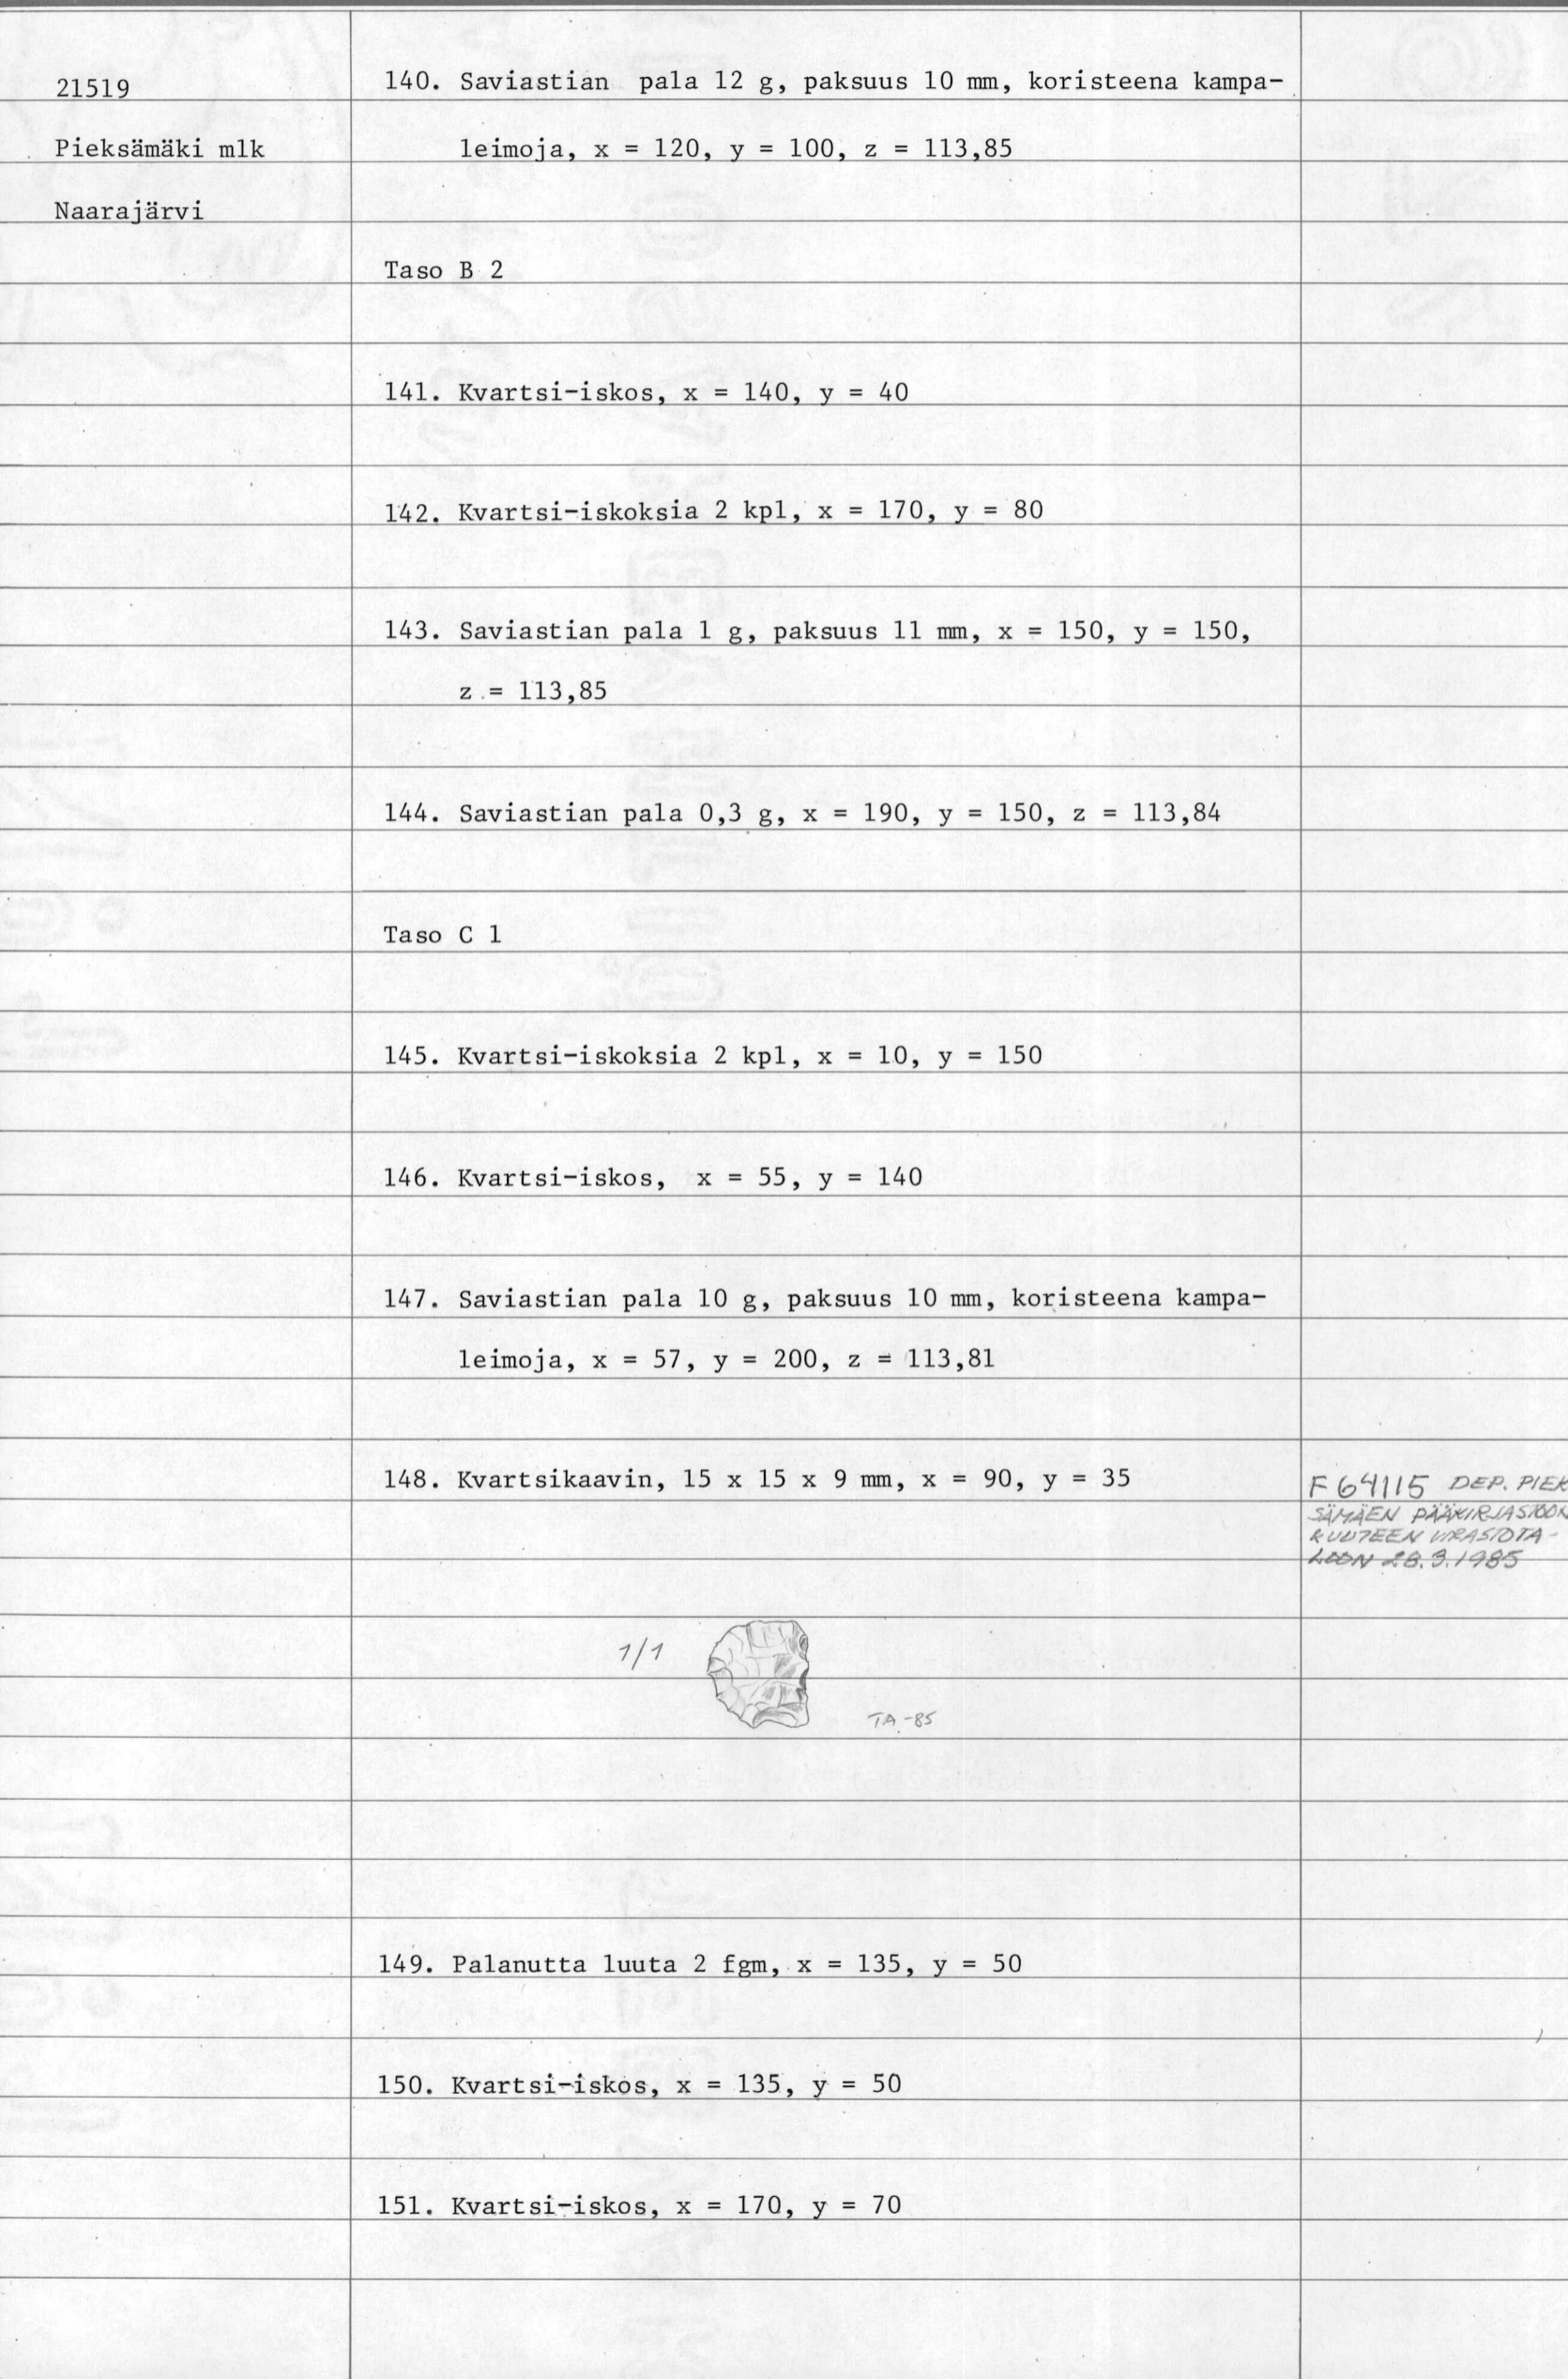 21519
Pieksämäki mlk
Naarajärvi
140. Saviastian pala 12 g, paksuus 10 mm, koristeena kampa-
leimoja, x = 120, y = 100, z = 113,85
Taso B 2
141. Kvartsi-iskos, x = 140, y = 40
142. Kvartsi-iskoksia 2 kpl, x = 170, y = 80
143. Saviastian pala 1 g, paksuus 11 mm, x = 150, y = 150,
z = 113,85
144. Saviastian pala 0,3 g, x = 190, y = 150, z = 113,84
Taso C 1
145. Kvartsi-iskoksia 2 kpl, x = 10, y = 150
146. Kvartsi-iskos, x = 55, y = 140
147. Saviastian pala 10 g, paksuus 10 mm, koristeena kampa-
leimoja, x = 57, y = 200, z = 113,81
148. Kvartsikaavin, 15 x 15 x 9 mm, x = 90, y = 35
F 64115 DEP. PIEK
SÄMÄEN PÄÄKIRJASTOON
VIRASTOTA-
LOON 28.3.1985
1/1
TA.-85
149. Palanutta luuta 2 fgm, x = 135, y = 50
150. Kvartsi-iskos, x = 135, y = 50
151. Kvartsi-iskos, x = 170, y = 70